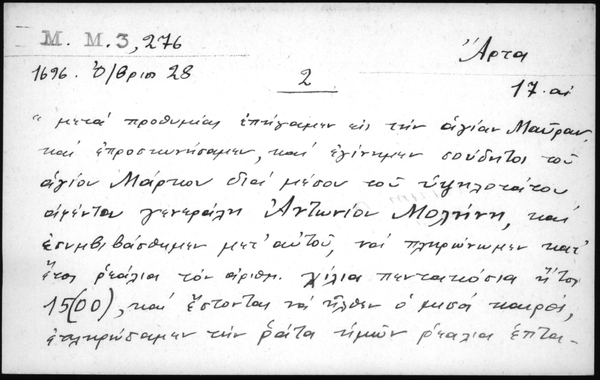 Μ. Μ. 3, 276
Ἄρτα
1696. Ὀ/βριο 28
2
17. αἰ
"μετά προθυμίας ἐπήγαμεν εἰς τήν ἁγίαν Μαῦραν,
καί ἐπροσκυνήσαμεν, καί ἐγίνημεν σούδητοι τοῦ
ἁγίου Μάρκου διά μέσου τοῦ ὑψηλοτάτου
ἀφέντου γενεράλη Ἀντωνίου Μολήνη, καί
ἐσυμβιβάσθημεν μετ' αὐτοῦ, νά πληρώνωμεν κατ'
ἔτος ῥεάλια τόν ἀριθμ. χίλια πεντακόσια ἤτοι
15(00), καί ἔστοντας νά ἦλθεν ὁ μισός καιρός,
ἐπληρώσαμεν τήν ῥάτα ἡμῶν ῥεάλια ἑπτα-